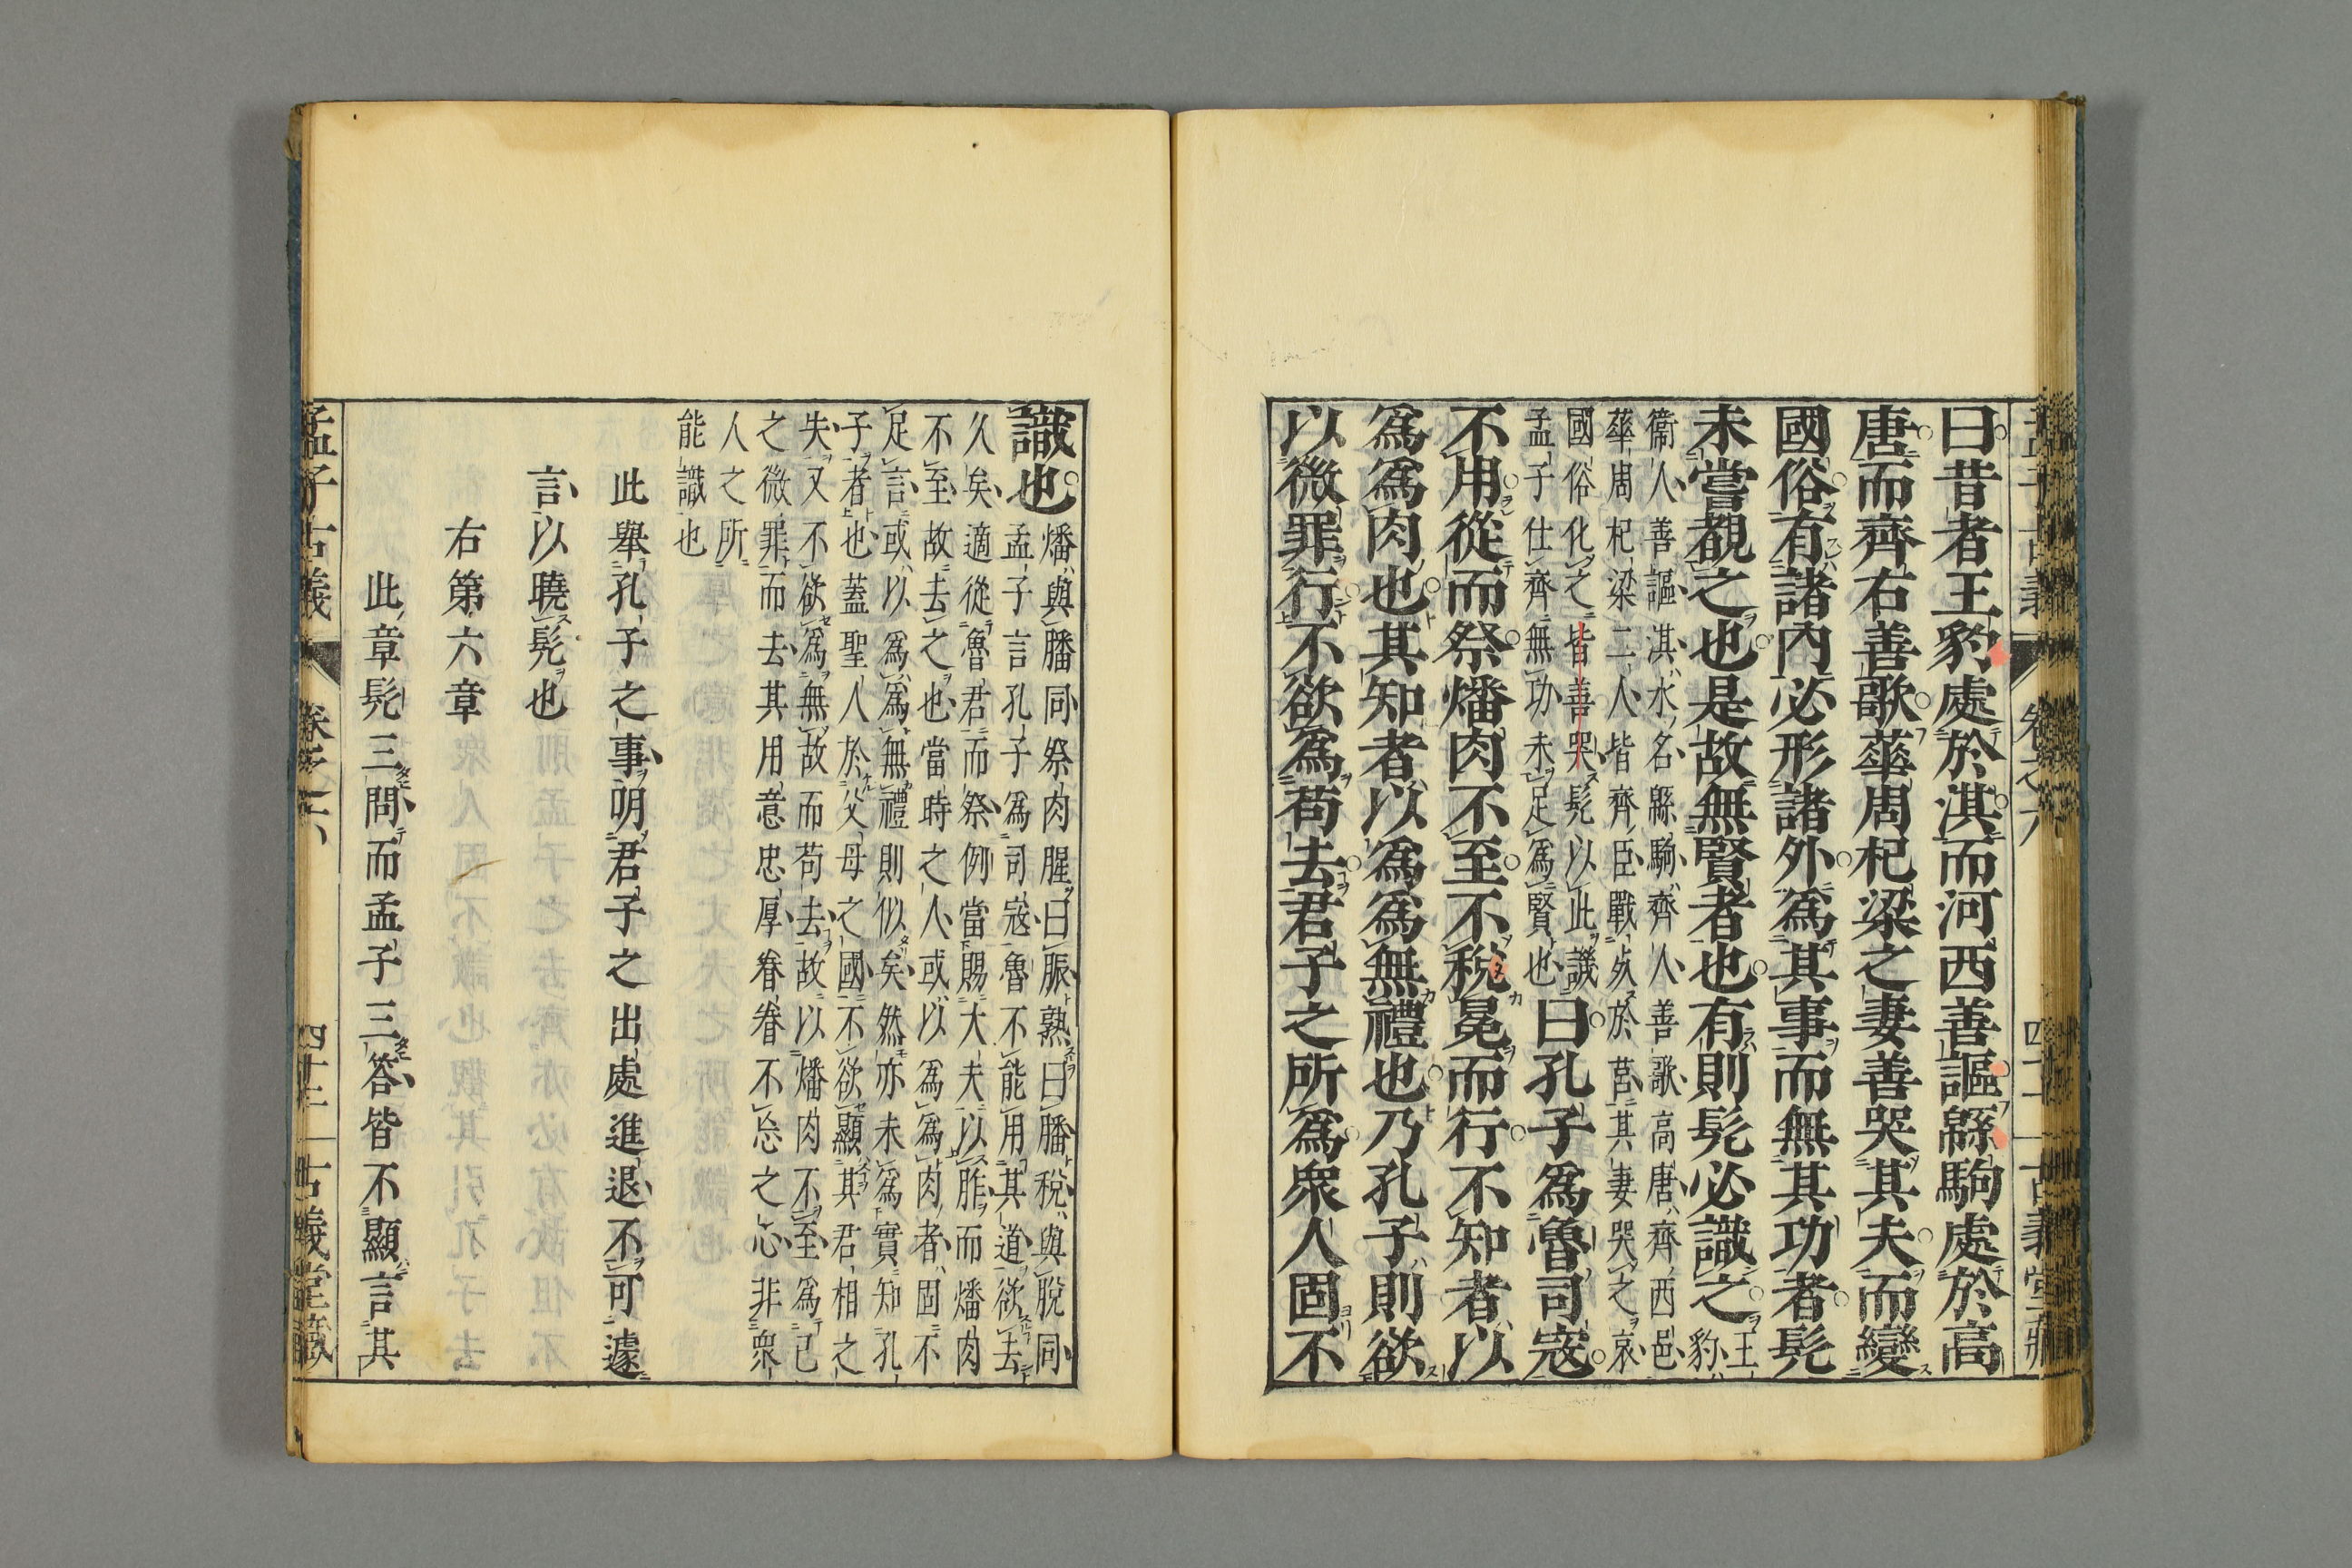 曰昔者王豹處於淇而河西善謳緜駒處於高
唐而齊右善歌華周杞梁之妻善哭其夫而變
國俗有諸内必形諸外爲其事而無其功者髡
未嘗覩之也是故無賢者也有則髡必識之
王豹
衞人善謳淇水名緜駒齊人善歌高唐齊西邑
華周杞梁二人皆齊臣戰死於莒其妻哭之哀
國俗化之皆善哭髡以此譏
孟子仕齊無功未足爲賢也
曰孔子爲魯司寇
不用從而祭燔肉不至不稅冕而行不知者以
爲爲肉也其知者以爲爲無禮也乃孔子則欲
以微罪行不欲爲苟去君子之所爲衆人固不
識也
燔與膰同祭肉腥曰脤熟曰膰稅與脫同
孟子言孔子爲司寇魯不能用其道欲去
久矣適從魯君而祭例當賜大夫以胙而燔肉
不至故去之也當時之人或以爲爲肉者固不
足言或以爲爲無禮則似矣然亦未爲實知孔
子者也蓋聖人於父母之國不欲顯其君相之
失又不欲爲無故而苟去故以燔肉不至爲已
之微罪而去其用意忠厚眷眷不忘之心非衆
人之所
能識也
此舉孔子之事明君子之出處進退不可遽
言以曉髡也
右第六章
此章髡三問而孟子三答皆不顯言其
孟子古義 卷之六 四十三 古義堂藏